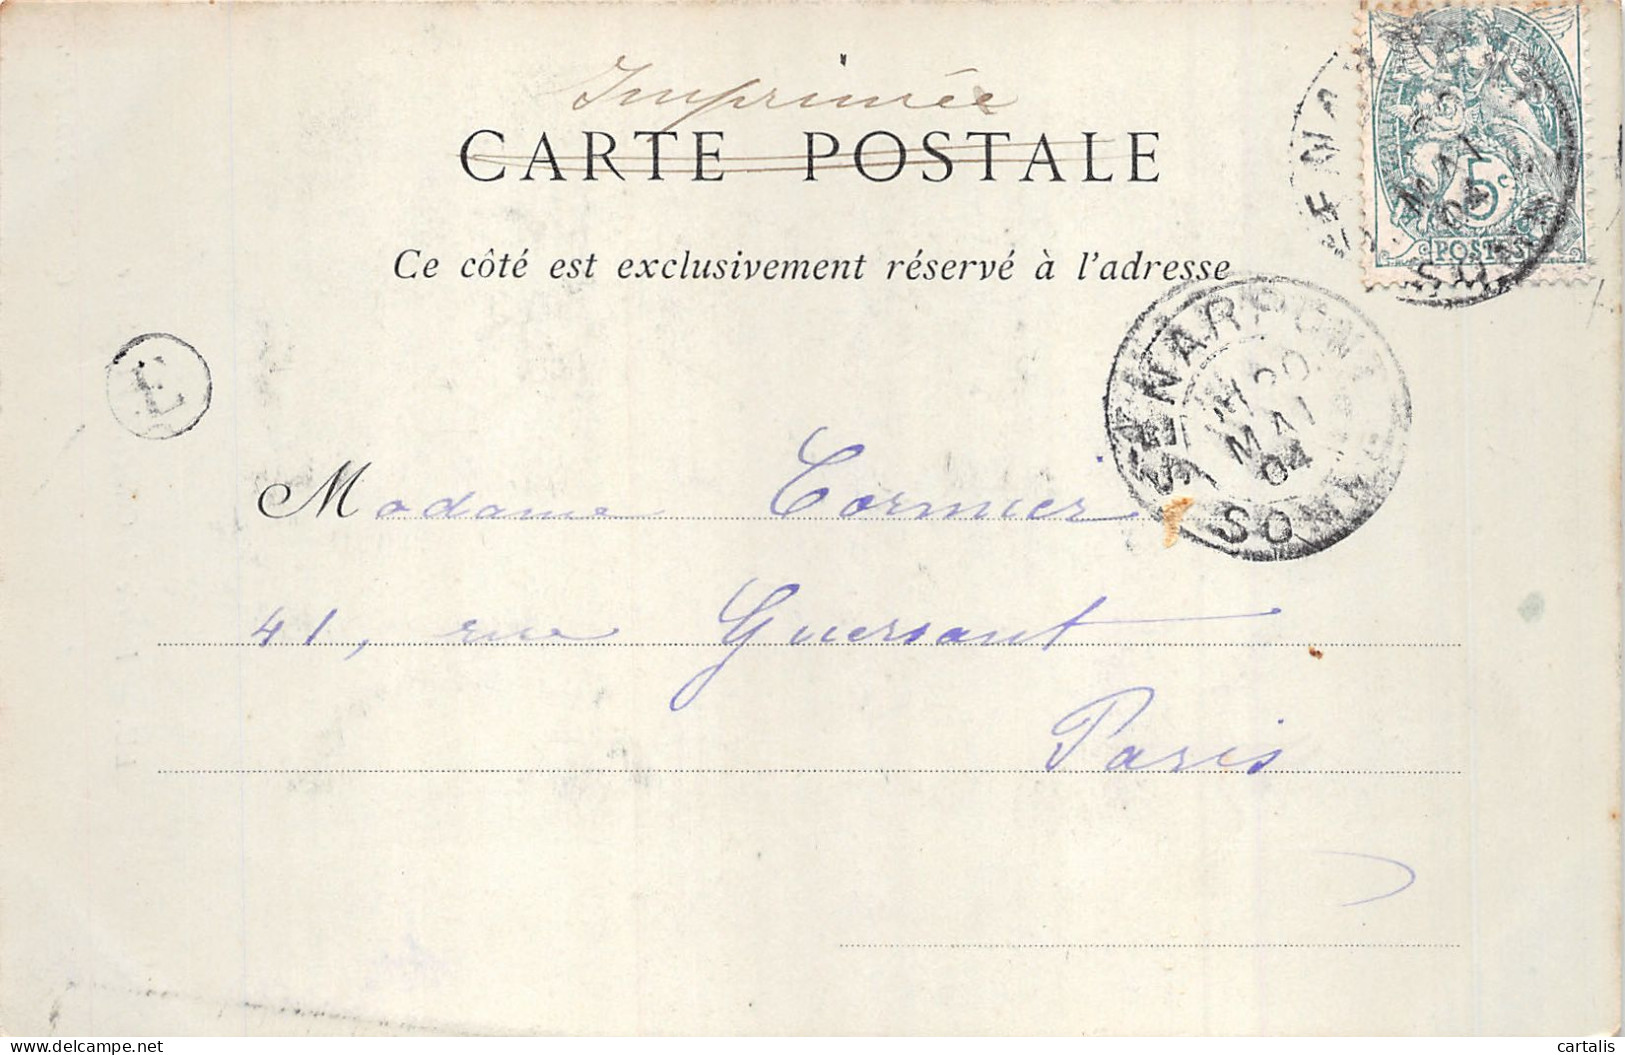 Imprimée
CARTE POSTALE
5c
POSTES
Ce côté est exclusivement réservé à l'adresse
SENARPONT
20
MAI
04
SOMME
E
Madame Cormier
41, rue Guersant
Paris
delcampe.net
cartalis